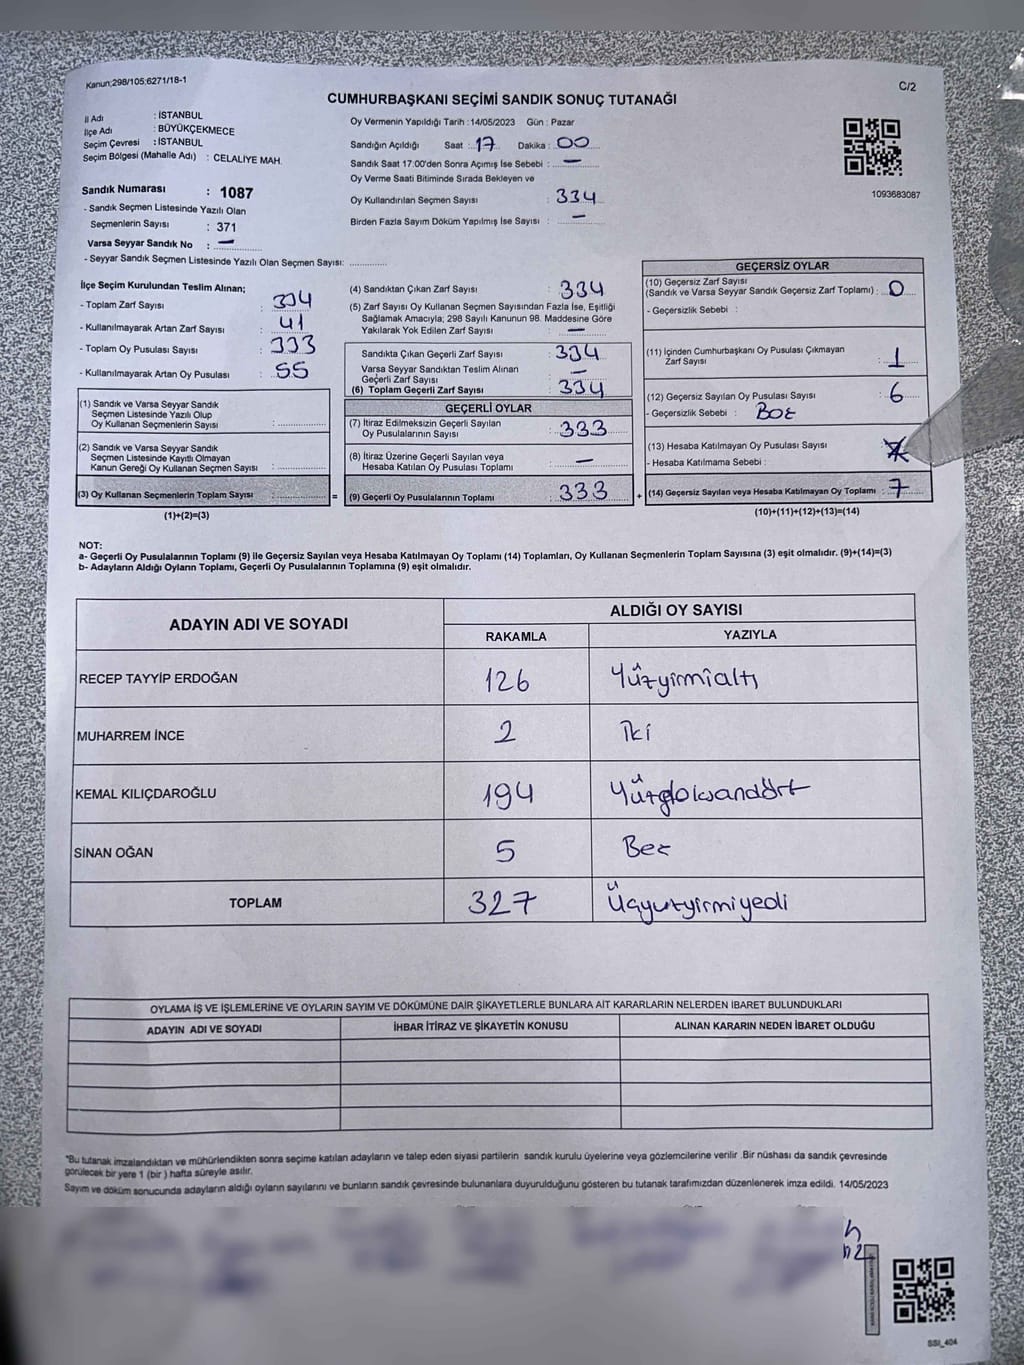 Kanun;298/105;6271/18-1
C/2
CUMHURBAŞKANI SEÇİMİ SANDIK SONUÇ TUTANAĞI
İl Adı : İSTANBUL
İlçe Adı : BÜYÜKÇEKMECE
Seçim Çevresi : İSTANBUL
Seçim Bölgesi (Mahalle Adı) : CELALİYE MAH.
Sandık Numarası : 1087
- Sandık Seçmen Listesinde Yazılı Olan
Seçmenlerin Sayısı : 371
Varsa Seyyar Sandık No : —
- Seyyar Sandık Seçmen Listesinde Yazılı Olan Seçmen Sayısı: ............
Oy Vermenin Yapıldığı Tarih : 14/05/2023 Gün : Pazar
Sandığın Açıldığı Saat : 17 Dakika : 00
Sandık Saat 17:00'den Sonra Açımış İse Sebebi : —
Oy Verme Saati Bitiminde Sırada Bekleyen ve
Oy Kullandırılan Seçmen Sayısı : 334
Birden Fazla Sayım Döküm Yapılmış İse Sayısı : —
1093683087
İlçe Seçim Kurulundan Teslim Alınan;
- Toplam Zarf Sayısı : 334
- Kullanılmayarak Artan Zarf Sayısı : 41
- Toplam Oy Pusulası Sayısı : 333
- Kullanılmayarak Artan Oy Pusulası : 55
(1) Sandık ve Varsa Seyyar Sandık
Seçmen Listesinde Yazılı Olup
Oy Kullanan Seçmenlerin Sayısı : ............
(2) Sandık ve Varsa Seyyar Sandık
Seçmen Listesinde Kayıtlı Olmayan
Kanun Gereği Oy Kullanan Seçmen Sayısı : ............
(3) Oy Kullanan Seçmenlerin Toplam Sayısı : ............ =
(1)+(2)=(3)
(4) Sandıktan Çıkan Zarf Sayısı : 334
(5) Zarf Sayısı Oy Kullanan Seçmen Sayısından Fazla İse, Eşitliği
Sağlamak Amacıyla; 298 Sayılı Kanunun 98. Maddesine Göre
Yakılarak Yok Edilen Zarf Sayısı : —
Sandıkta Çıkan Geçerli Zarf Sayısı : 334
Varsa Seyyar Sandıktan Teslim Alınan
Geçerli Zarf Sayısı : —
(6) Toplam Geçerli Zarf Sayısı : 334
GEÇERLİ OYLAR
(7) İtiraz Edilmeksizin Geçerli Sayılan
Oy Pusulalarının Sayısı : 333
(8) İtiraz Üzerine Geçerli Sayılan veya
Hesaba Katılan Oy Pusulası Toplamı : —
(9) Geçerli Oy Pusulalarının Toplamı : 333 +
GEÇERSİZ OYLAR
(10) Geçersiz Zarf Sayısı
(Sandık ve Varsa Seyyar Sandık Geçersiz Zarf Toplamı) : 0
- Geçersizlik Sebebi :
(11) İçinden Cumhurbaşkanı Oy Pusulası Çıkmayan
Zarf Sayısı : 1
(12) Geçersiz Sayılan Oy Pusulası Sayısı : 6
- Geçersizlik Sebebi : Boş
(13) Hesaba Katılmayan Oy Pusulası Sayısı :
- Hesaba Katılmama Sebebi :
(14) Geçersiz Sayılan veya Hesaba Katılmayan Oy Toplamı : 7
(10)+(11)+(12)+(13)=(14)
NOT:
a- Geçerli Oy Pusulalarının Toplamı (9) ile Geçersiz Sayılan veya Hesaba Katılmayan Oy Toplamı (14) Toplamları, Oy Kullanan Seçmenlerin Toplam Sayısına (3) eşit olmalıdır. (9)+(14)=(3)
b- Adayların Aldığı Oyların Toplamı, Geçerli Oy Pusulalarının Toplamına (9) eşit olmalıdır.
ADAYIN ADI VE SOYADI
ALDIĞI OY SAYISI
RAKAMLA YAZIYLA
RECEP TAYYİP ERDOĞAN 126 Yüzyirmialtı
MUHARREM İNCE 2 İki
KEMAL KILIÇDAROĞLU 194 Yüzdoksandört
SİNAN OĞAN 5 Beş
TOPLAM 327 Üçyüzyirmiyedi
OYLAMA İŞ VE İŞLEMLERİNE VE OYLARIN SAYIM VE DÖKÜMÜNE DAİR ŞİKAYETLERLE BUNLARA AİT KARARLARIN NELERDEN İBARET BULUNDUKLARI
ADAYIN ADI VE SOYADI İHBAR İTİRAZ VE ŞİKAYETİN KONUSU ALINAN KARARIN NEDEN İBARET OLDUĞU
*Bu tutanak imzalandıktan ve mühürlendikten sonra seçime katılan adayların ve talep eden siyasi partilerin sandık kurulu üyelerine veya gözlemcilerine verilir .Bir nüshası da sandık çevresinde
görülecek bir yere 1 (bir ) hafta süreyle asılır.
Sayım ve döküm sonucunda adayların aldığı oyların sayılarını ve bunların sandık çevresinde bulunanlara duyurulduğunu gösteren bu tutanak tarafımızdan düzenlenerek imza edildi. 14/05/2023
SSI_404